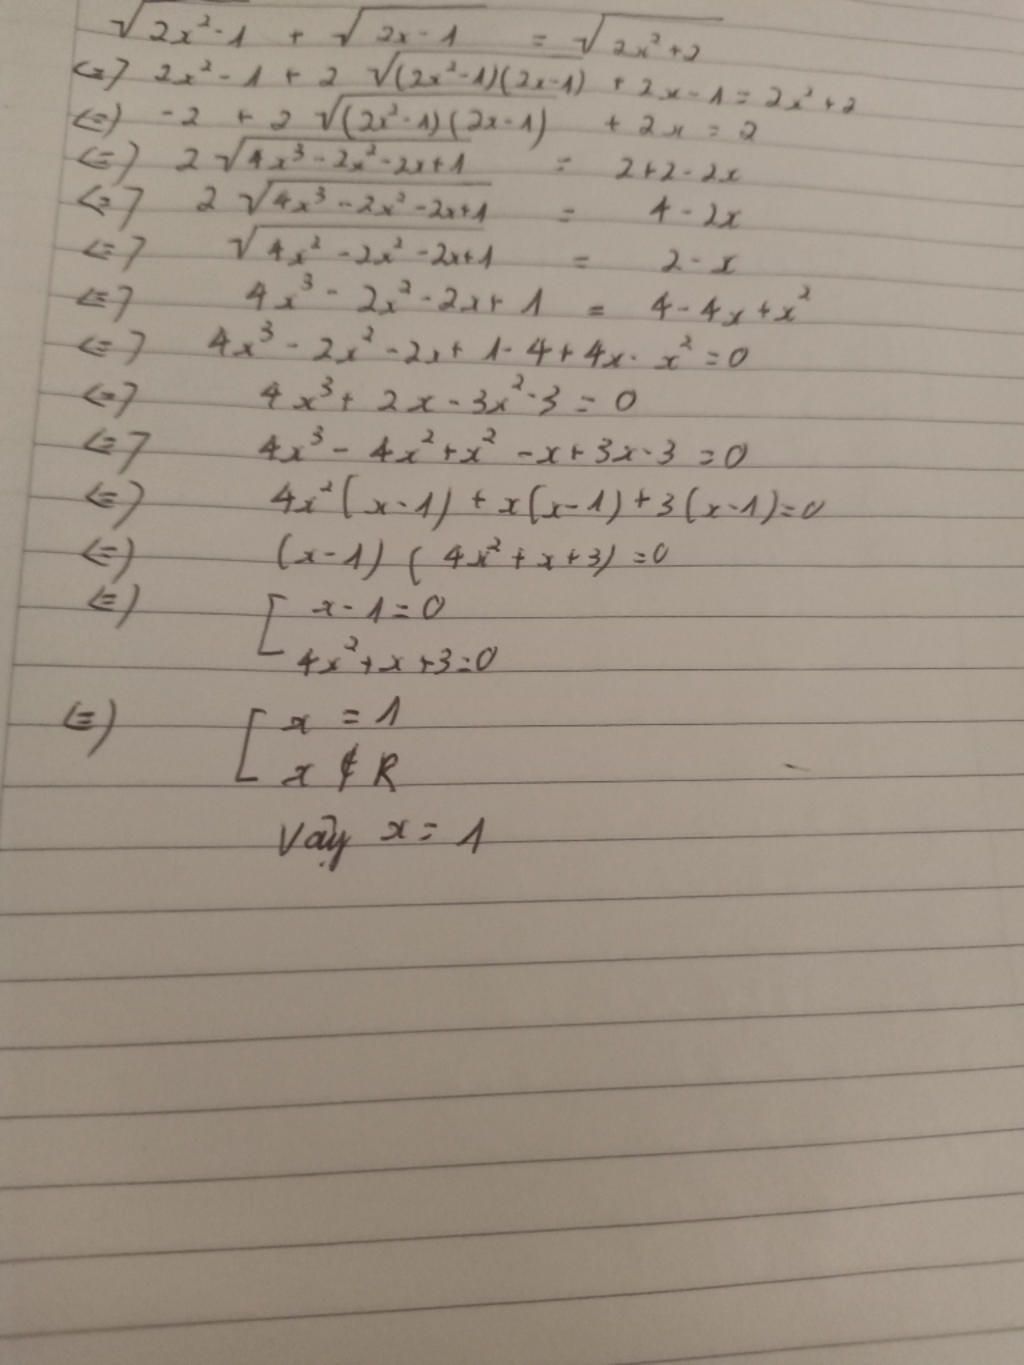 √(2x²-1) + √(2x-1) = √(2x²+2)
<=> 2x²-1 + 2 √((2x²-1)(2x-1)) + 2x-1 = 2x²+2
<=> -2 + 2 √((2x²-1)(2x-1)) + 2x = 2
<=> 2 √(4x³-2x²-2x+1) = 2+2-2x
<=> 2 √(4x³-2x²-2x+1) = 4-2x
<=> √(4x²-2x²-2x+1) = 2-x
<=> 4x³-2x²-2x+1 = 4-4x+x²
<=> 4x³-2x²-2x+1-4+4x-x²=0
<=> 4x³+2x-3x²-3=0
<=> 4x³-4x²+x²-x+3x-3=0
<=> 4x²(x-1)+x(x-1)+3(x-1)=0
<=> (x-1)(4x²+x+3)=0
<=> [ x-1=0
4x²+x+3=0
<=> [ x = 1
x ∉ R
Vậy x = 1